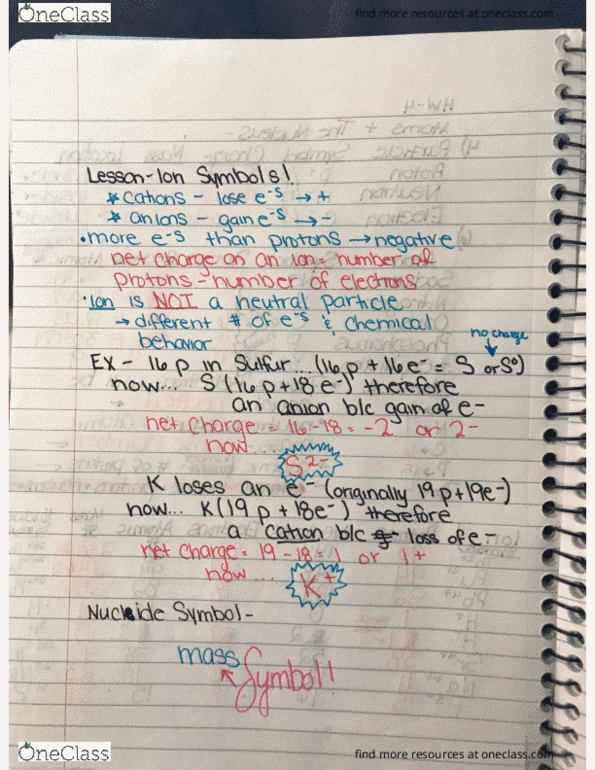 OneClass
find more resources at oneclass.com
Lesson-Ion Symbols!
* cations - lose e-s → +
* anions - gain e-s → -
• more e-s than protons → negative
net charge on an ion = number of
protons - number of electrons
• Ion is NOT a neutral particle
→ different # of e-s & chemical
behavior
no charge
EX - 16 p in Sulfur... (16 p + 16 e- = S or S⁰)
now... S (16 p + 18 e-) therefore
an anion b/c gain of e-
net charge = 16 - 18 = -2 or 2-
now...
S²-
K loses an e- (originally 19 p + 19e-)
now... K (19 p + 18e-) therefore
a cation b/c loss of e-
net charge = 19 - 18 = 1 or 1+
now...
K+
Nuclide Symbol -
mass
Symbol!
OneClass
find more resources at oneclass.com